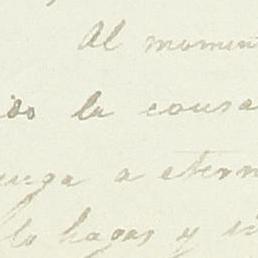 Al momen
do la cousa
nga a etern
lo hagas y si